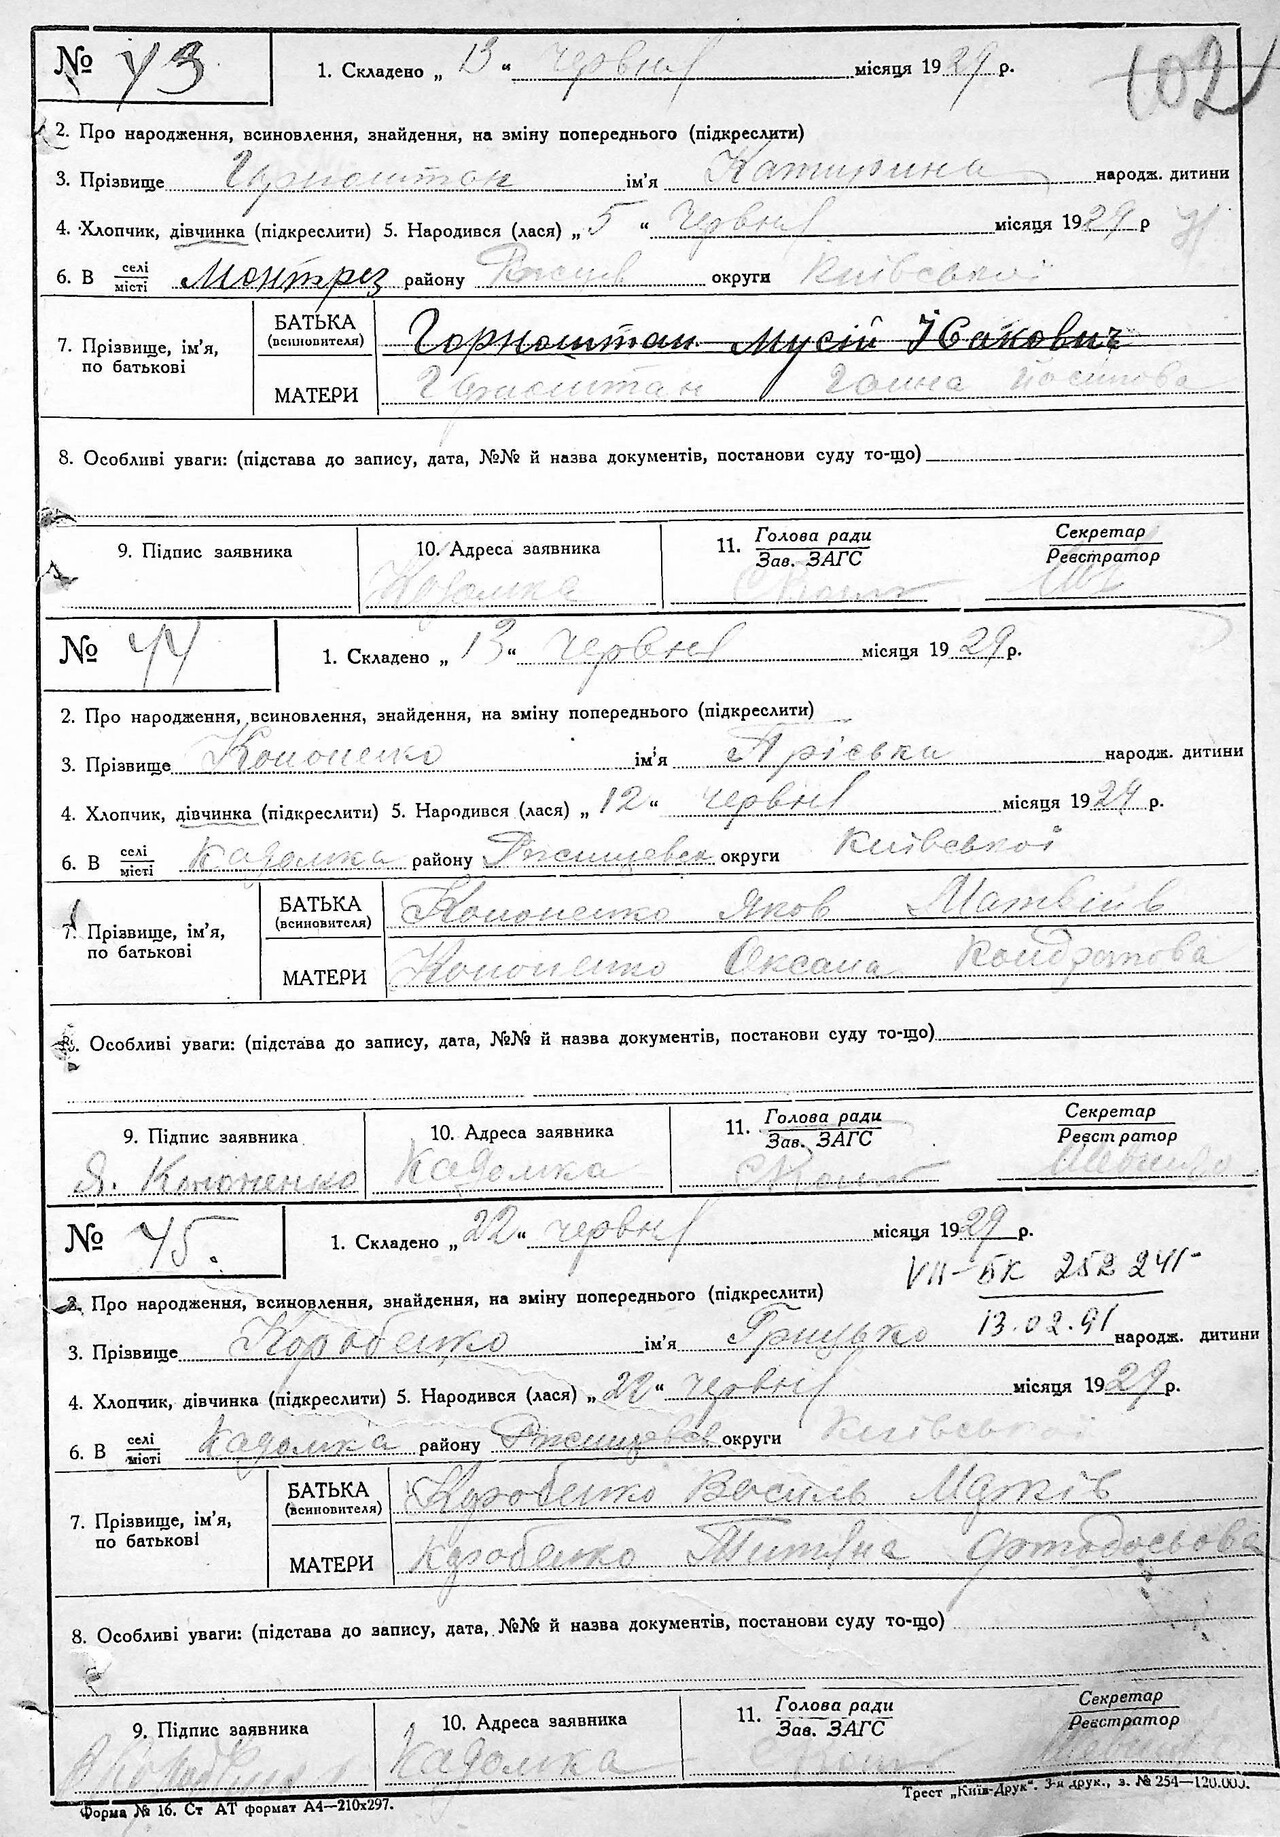 № 43 1. Складено „ 13 “ червня місяця 1929 р.
102
2. Про народження, всиновлення, знайдення, на зміну попереднього (підкреслити)
3. Прізвище Горноштан ім’я Катирина народж. дитини
4. Хлопчик, дівчинка (підкреслити) 5. Народився (лася) „ 5 “ червня місяця 1929 р
6. В селі/місті Монтрез району округи Київської
7. Прізвище, ім’я, по батькові
БАТЬКА (всиновителя) Горноштан Мусій Ісакович
МАТЕРИ Горноштан Ганна Йосипова
8. Особливі уваги: (підстава до запису, дата, №№ й назва документів, постанови суду то-що)
9. Підпис заявника 10. Адреса заявника 11. Голова ради/Зав. ЗАГС Секретар/Реєстратор
Кадомка
№ 44 1. Складено „ 13 “ червня місяця 1929 р.
2. Про народження, всиновлення, знайдення, на зміну попереднього (підкреслити)
3. Прізвище Кононенко ім’я Пріська народж. дитини
4. Хлопчик, дівчинка (підкреслити) 5. Народився (лася) „ 12 “ червня місяця 1929 р.
6. В селі/місті Кадомка району Ржищевськ округи Київської
7. Прізвище, ім’я, по батькові
БАТЬКА (всиновителя) Кононенко Яков Матвіїв
МАТЕРИ Кононенко Оксана Кондратова
8. Особливі уваги: (підстава до запису, дата, №№ й назва документів, постанови суду то-що)
9. Підпис заявника 10. Адреса заявника 11. Голова ради/Зав. ЗАГС Секретар/Реєстратор
Я. Кононенко Кадомка
№ 45. 1. Складено „ 22 “ червня місяця 1929 р.
VII-БК 252241-
2. Про народження, всиновлення, знайдення, на зміну попереднього (підкреслити)
13.02.91
3. Прізвище Коробенко ім’я Грицько народж. дитини
4. Хлопчик, дівчинка (підкреслити) 5. Народився (лася) „ 22 “ червня місяця 1929 р.
6. В селі/місті Кадомка району Ржищевськ округи Київської
7. Прізвище, ім’я, по батькові
БАТЬКА (всиновителя) Коробенко Василь Марків
МАТЕРИ Коробенко Титяна
8. Особливі уваги: (підстава до запису, дата, №№ й назва документів, постанови суду то-що)
9. Підпис заявника 10. Адреса заявника 11. Голова ради/Зав. ЗАГС Секретар/Реєстратор
Кадомка
Форма № 16. Ст АТ формат А4—210x297. Трест „Київ-Друк“. 3-я друк., з. № 254—120.000.